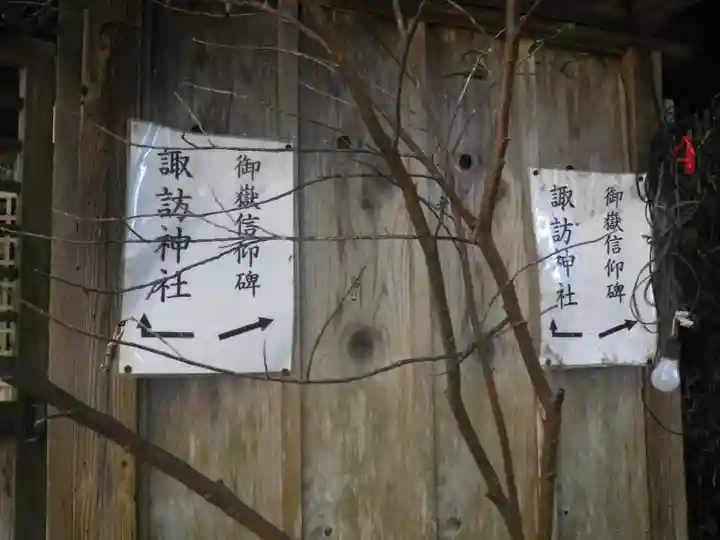 御嶽信仰碑
諏訪神社
御嶽信仰碑
諏訪神社